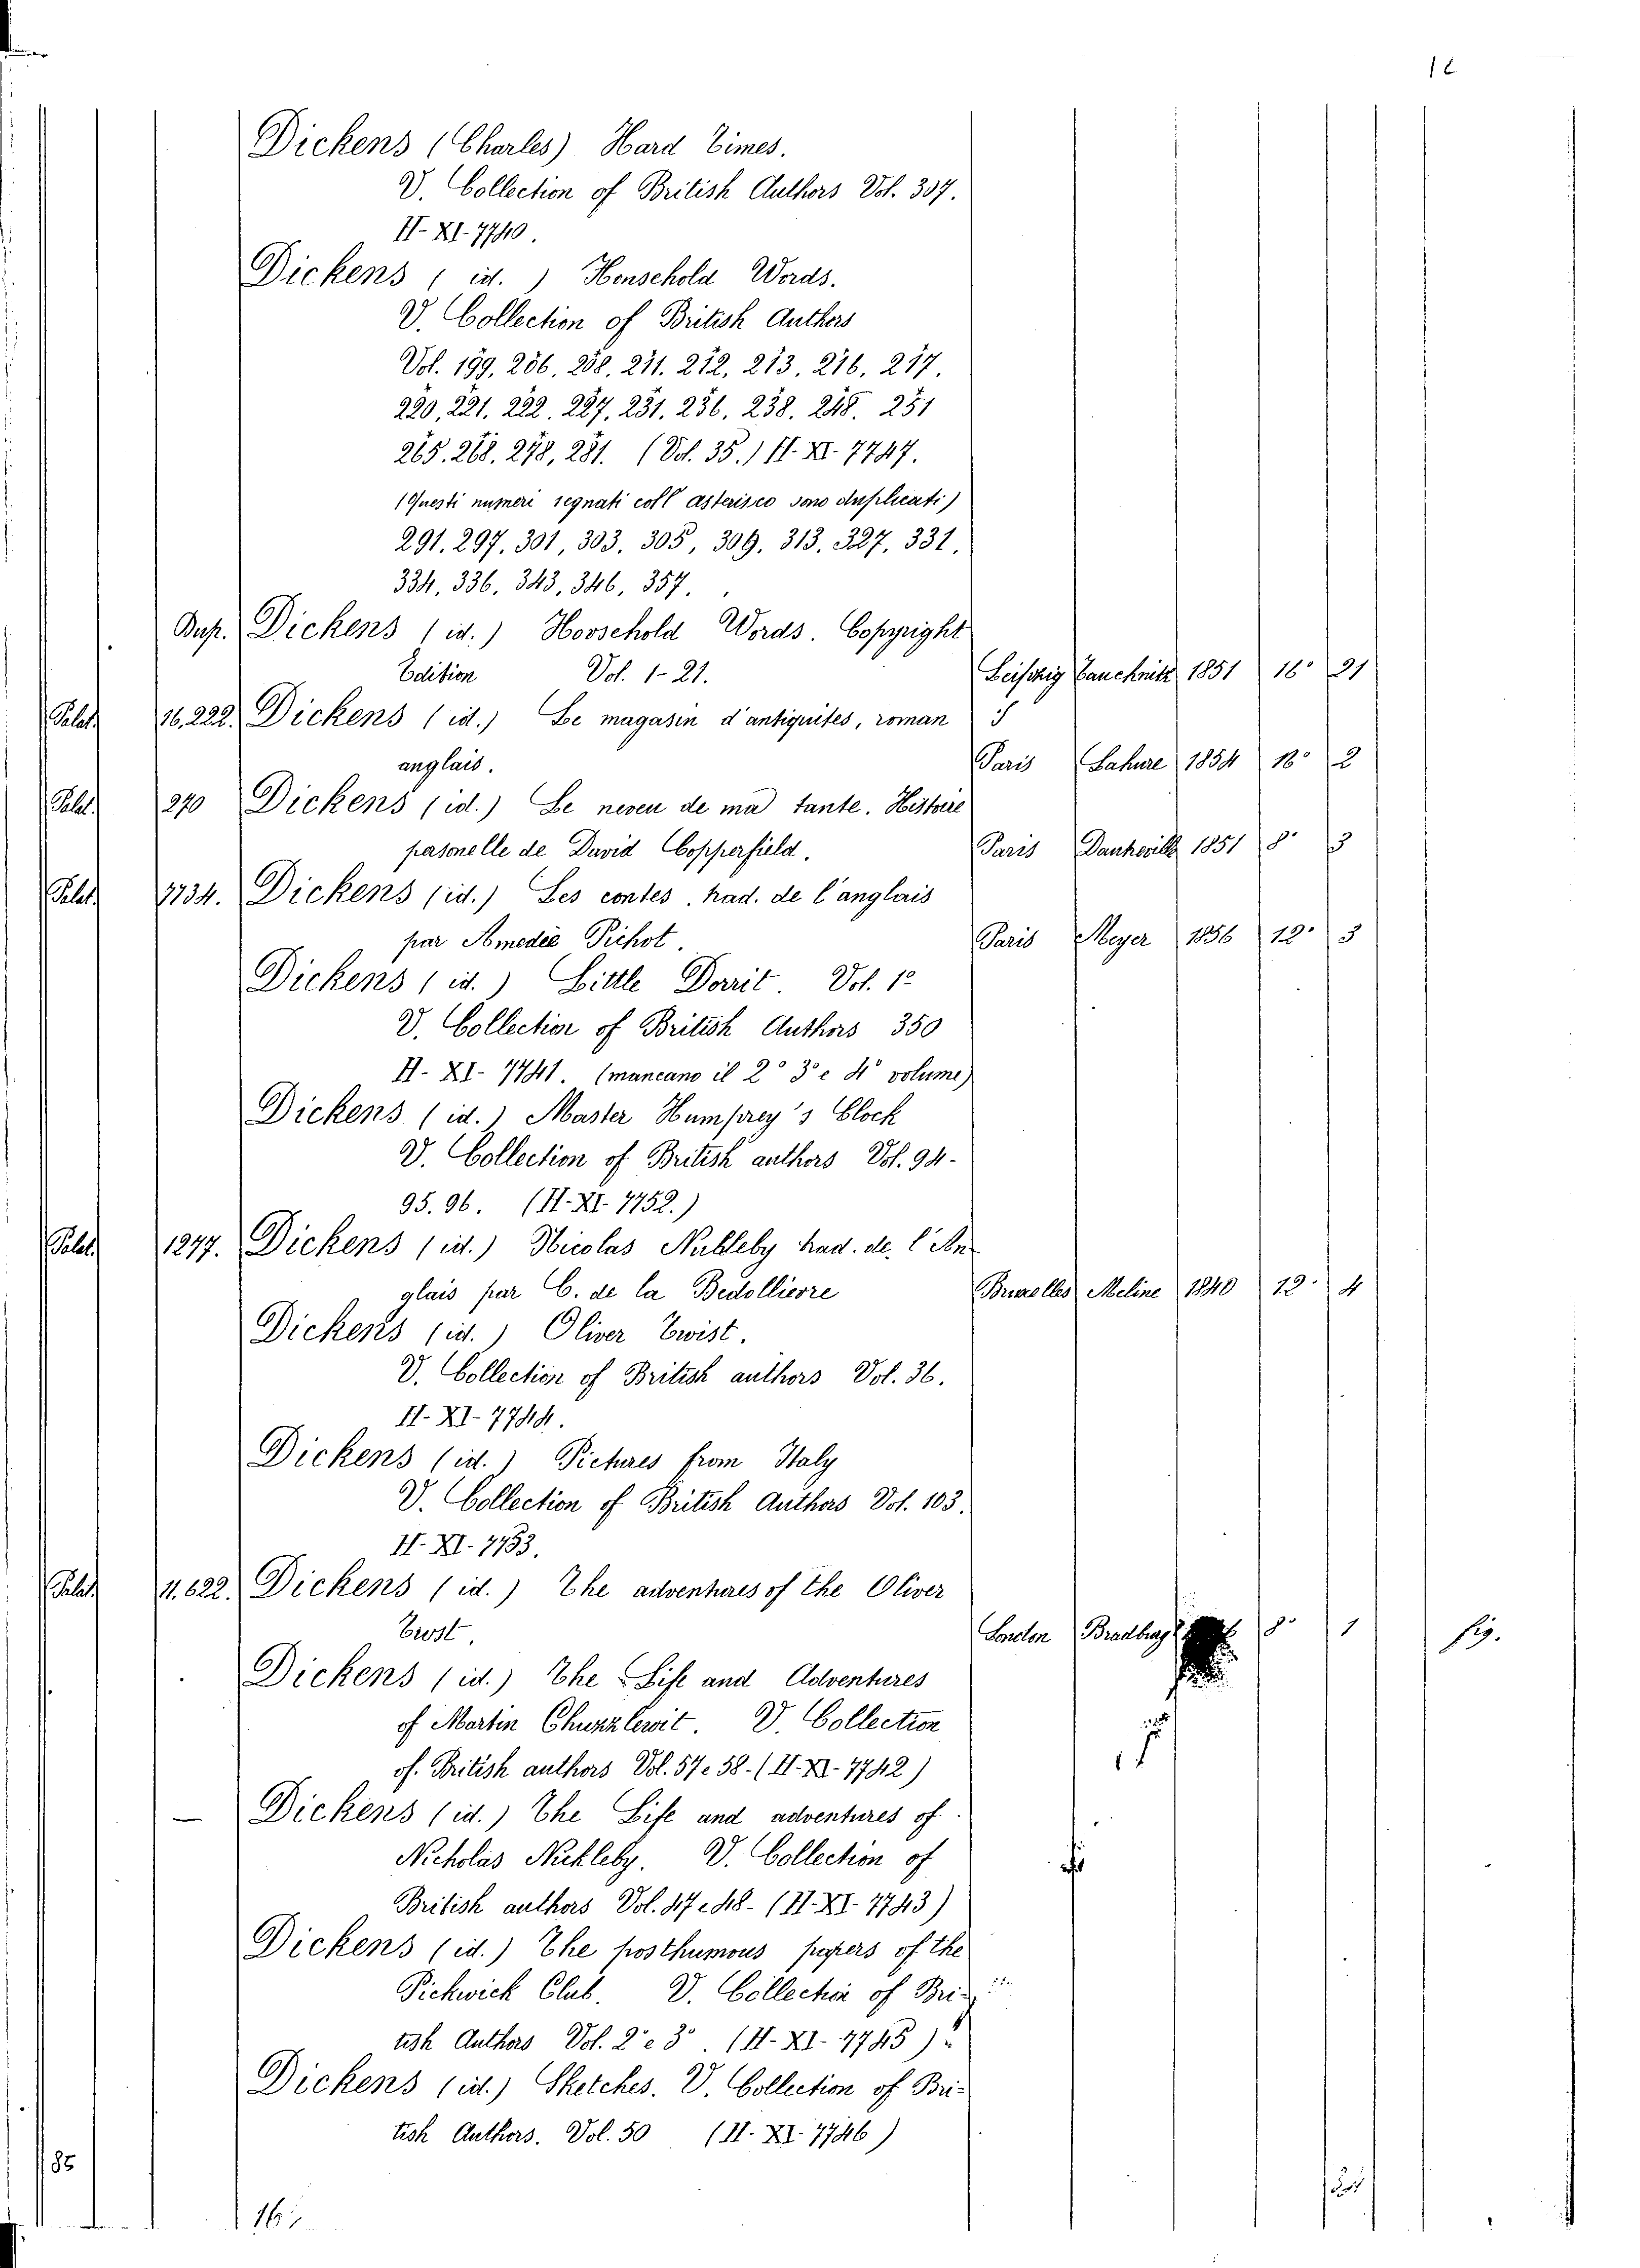 12
Dickens (Charles) Hard Times.
V. Collection of British Authors Vol. 307.
II-XI-7740.
Dickens (id.) Houschold Words.
V. Collection of British Authors
Vol. 199, 206. 208. 211. 212. 213. 216. 217.
220, 221. 222. 227. 231. 236. 238. 248. 251
265. 268. 278, 281. (Vol. 35.) II-XI-7747.
(Questi numeri segnati coll' asterisco sono duplicati)
291. 297. 301, 303. 305, 309. 313. 327. 331,
334, 336, 343, 346, 357.
Dup. Dickens (id.) Hovschold Words. Copyright
Edition Vol. 1-21. Leipzig Tauchnitz 1851 16° 21
Palat. 16.222. Dickens (id.) Le magasin d'antiquités, roman
anglais. Paris Lahure 1854 18° 2
Palat. 270 Dickens (id.) Le neveu de ma tante. Histoire
pesonelle de David Copperfield. Paris 1851 8° 3
Palat. 7734. Dickens (id.) Les contes, trad. de l'anglais
par Amedée Pichot. Paris Meyer 1856 12° 3
Dickens (id.) Little Dorrit. Vol. 1°
V. Collection of British Authors 350
II-XI-7741. (mancano il 2° 3° e 4° volume)
Dickens (id.) Master Humprey's Clock
V. Collection of British authors Vol. 94-
95. 96. (II-XI-7752.)
Palat. 1277. Dickens (id.) Nicolas Nickleby trad. de l'An
glais par E. de la Bedollierre Bruxelles Meline 1840 12° 4
Dickens (id.) Oliver Twist.
V. Collection of British authors Vol. 36.
II-XI-7744.
Dickens (id.) Pictures from Italy
V. Collection of British Authors Vol. 103.
II-XI-7753.
Palat. 11.622. Dickens (id.) The adventures of the Oliver
Twist. London Bradbury 8° 1 fig.
Dickens (id.) The Life and Adventures
of Martin Chuzzlewit. V. Collection
of. British authors Vol. 57 e 58-(II-XI-7742)
— Dickens (id.) The Life and adventures of
Nicholas Nickleby. V. Collection of
British authors Vol. 47 e 48-(II-XI-7743)
Dickens (id.) The posthumous papers of the
Pickwick Club. V. Collection of Bri-
tish Authors Vol. 2° e 3°. (II-XI-7745)
Dickens (id.) Sketches. V. Collection of Bri-
tish Authors. Vol. 50 (II-XI-7746)
85
16